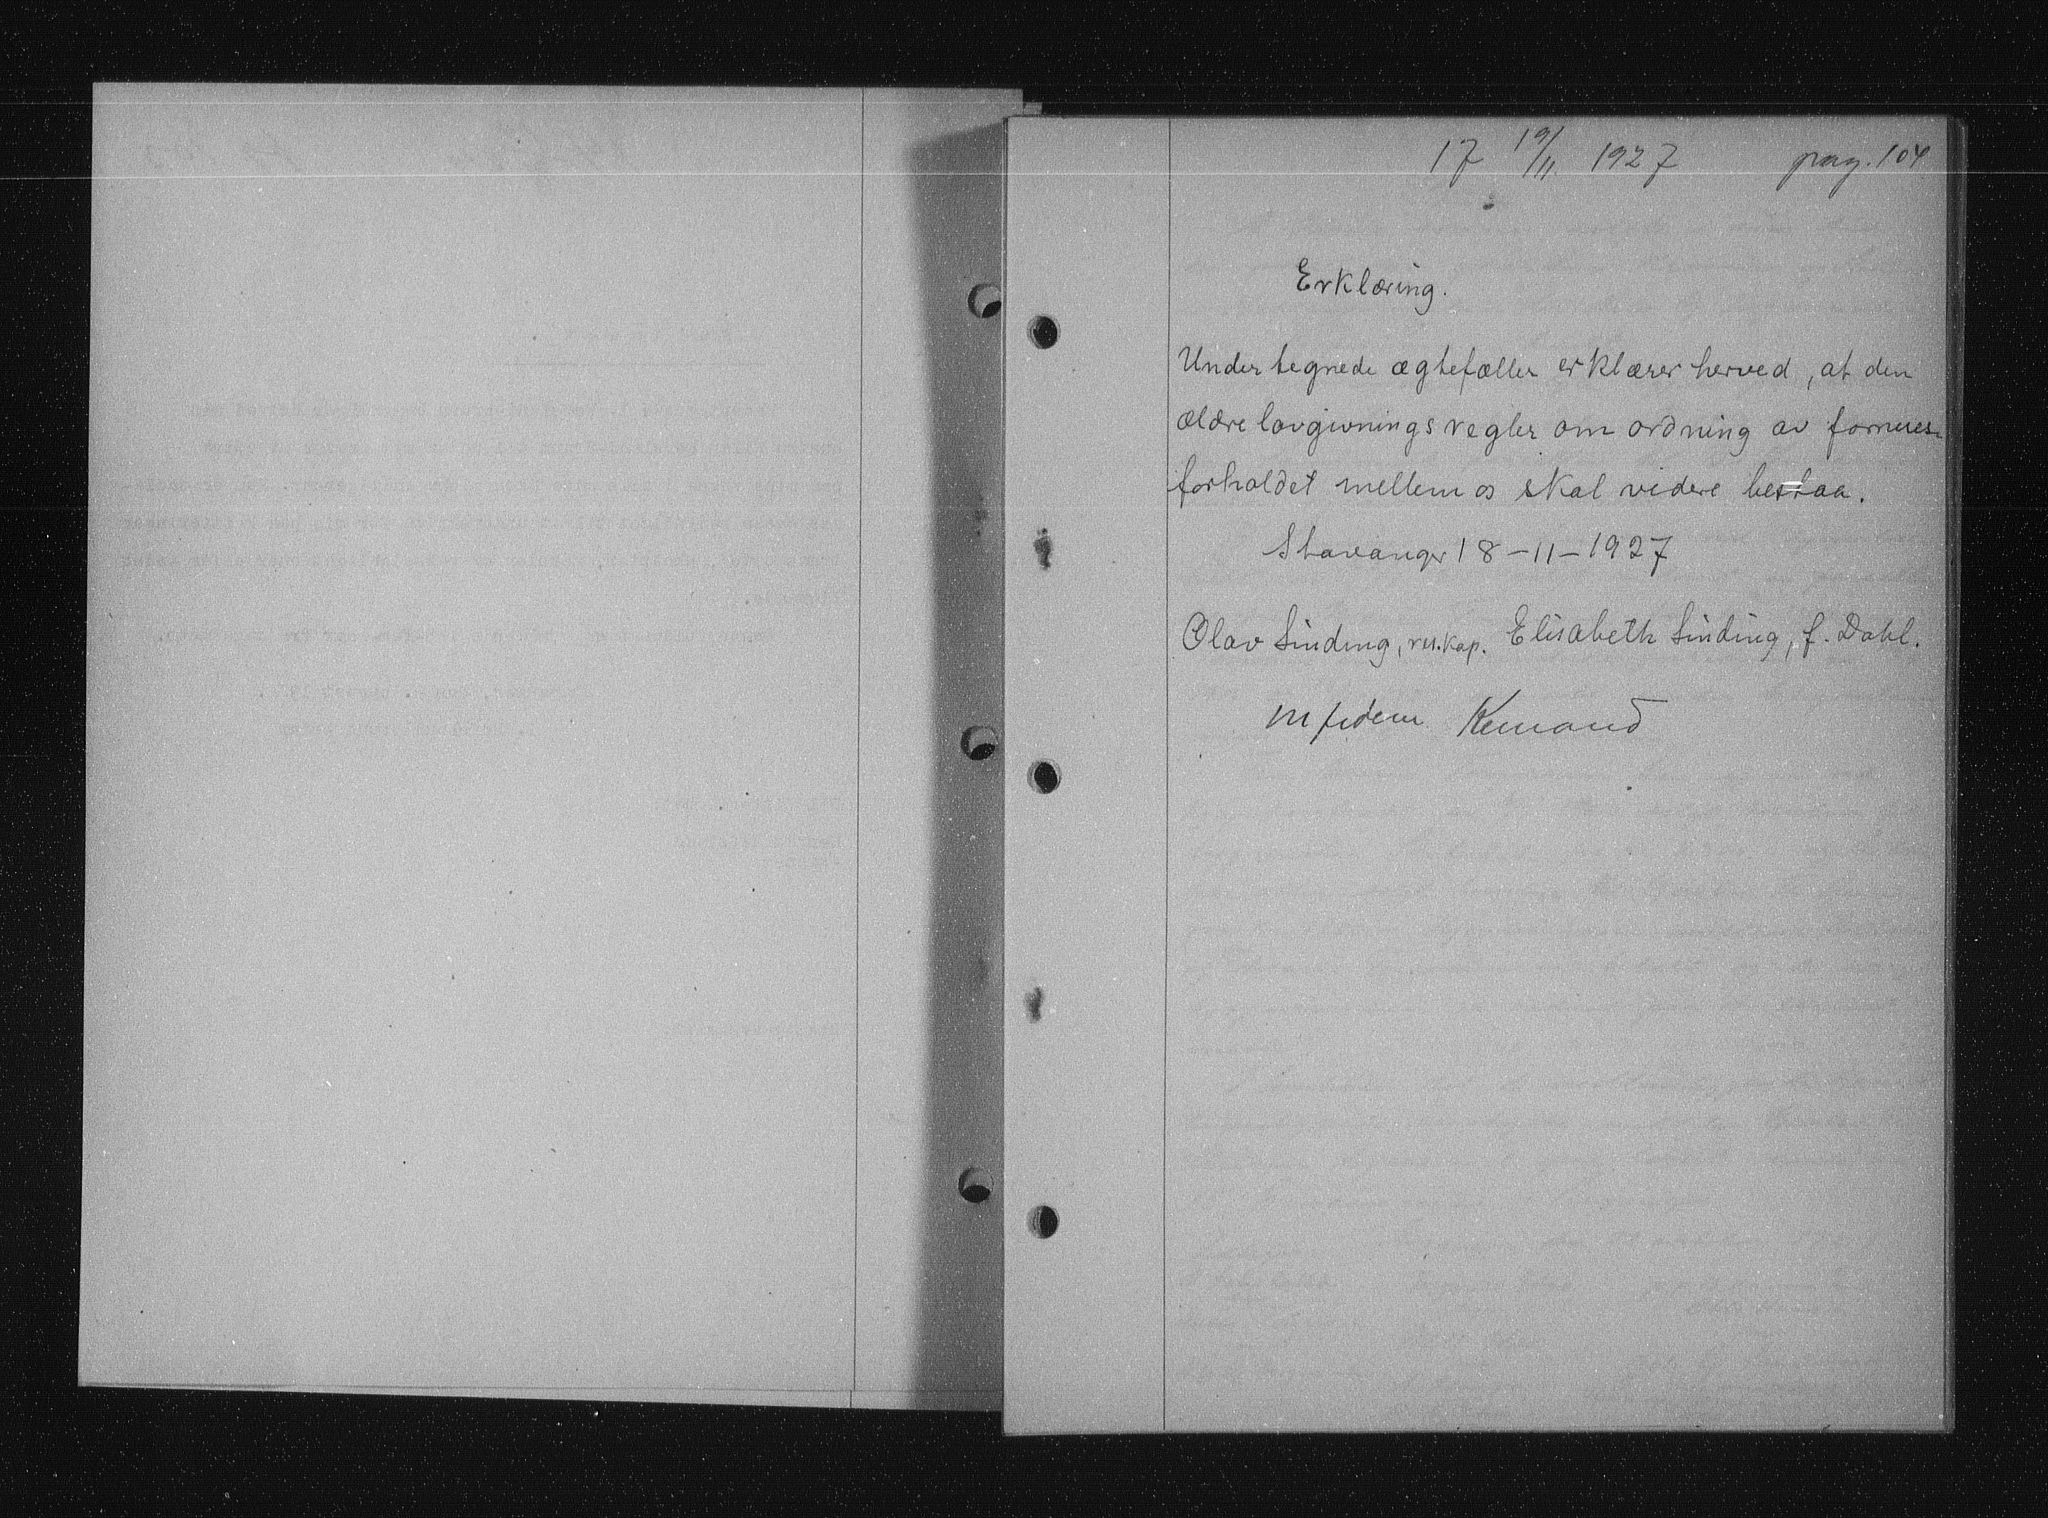 17 19/11 1927 pag. 104
Erklæring.
Undertegnede ægtefæller erklærer herved, at den
ældre lovgivnings regler om ordning av formues-
forholdet mellem os skal videre bestaa.
Stavanger 18-11-1927
Olav Sinding, res.kap. Elisabeth Sinding, f. Dahl.
in fidem